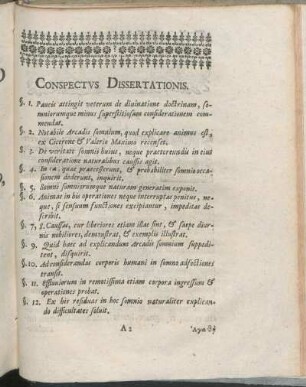 CONSPECTVS DISSERTATIONIS.
§. 1. Paucis attingit veterum de divinatione doctrinam, so-
mniorumque minus superstitiosam considerationem com-
mendat.
§. 2. Notabile Arcadis somnium, quod explicare animus est,
ex Cicerone & Valerio Maximo recenset.
§. 3. De veritate somnii huius, neque praetereundis in eius
consideratione naturalibus caussis agit.
§. 4. In ea, quae praecesserunt, & probabiliter somnio occa-
sionem dederunt, inquirit.
§. 5. Somni somniorumque naturam generatim exponit.
§. 6. Animae in his operationes neque interruptas prorsus, ne-
que, si sensuum functiones excipiantur, impeditas de-
scribit.
§. 7. 8. Caussas, cur liberiores etiam illae sint, & saepe diur-
nis nobiliores, demonstrat, & exemplis illustrat.
§. 9. Quid haec ad explicandum Arcadis somnium suppedi-
tent, disquirit.
§. 10. Ad considerandas corporis humani in somno adfectiones
transit.
§. 11 Effluviorum in remotissima etiam corpora ingressum &
operationes probat.
§. 12. Ex his residuas in hoc somnio naturaliter explican-
do difficultates soluit.
A 2